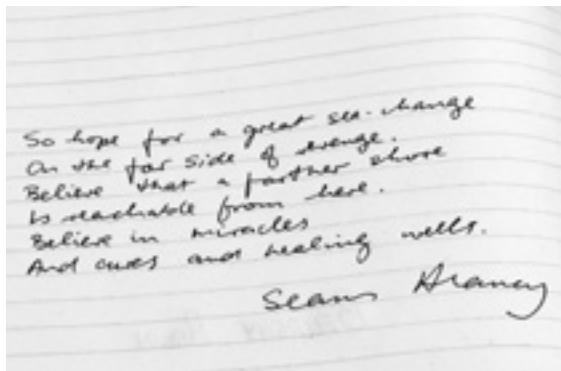 So hope for a great sea-change
On the far side of revenge.
Believe that a farther shore
Is reachable from here.
Believe in miracles
And cures and healing wells.
Seamus Heaney